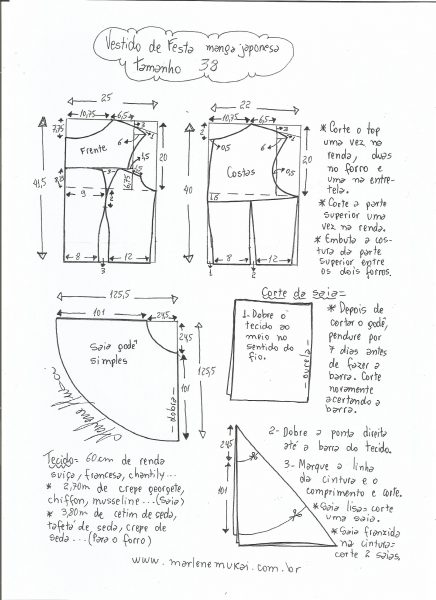 Vestido de Festa manga japonesa
tamanho 38
25
10,75
6,5
7,75
3
6
20
Frente
1,5
3
6,75
41,5
9
2
8
12
3
22
10,75
6,5
2
3
0,5
6
20
Costas
0,5
40
1,5
8
12
1
2
* Corte o top
uma vez na
renda, duas
no forro e
uma na entre-
tela.
* Corte a parte
superior uma
vez na renda.
* Embuta a cos-
tura da parte
superior entre
os dois forros.
125,5
101
24,5
24,5
Saia godê
simples
125,5
101
dobra
Marlene Mukai
Corte da saia=
1- Dobre o
tecido ao
meio no
sentido do
fio.
ourela
* Depois de
cortar o godê,
pendure por
7 dias antes
de fazer a
barra. Corte
novamente
acertando a
barra.
2- Dobre a ponta direita
até a barra do tecido.
3- Marque a linha
da cintura e o
comprimento e corte.
* Saia lisa= corte
uma saia.
* Saia franzida
na cintura=
corte 2 saias.
24,5
101
Tecido= 60cm de renda
suiça, francesa, chantily...
* 2,70m de crepe georgete,
chiffon, musseline...(Saia)
* 3,80m de cetim de seda,
tafetá de seda, crepe de
seda...(Para o forro)
www.marlenemukai.com.br